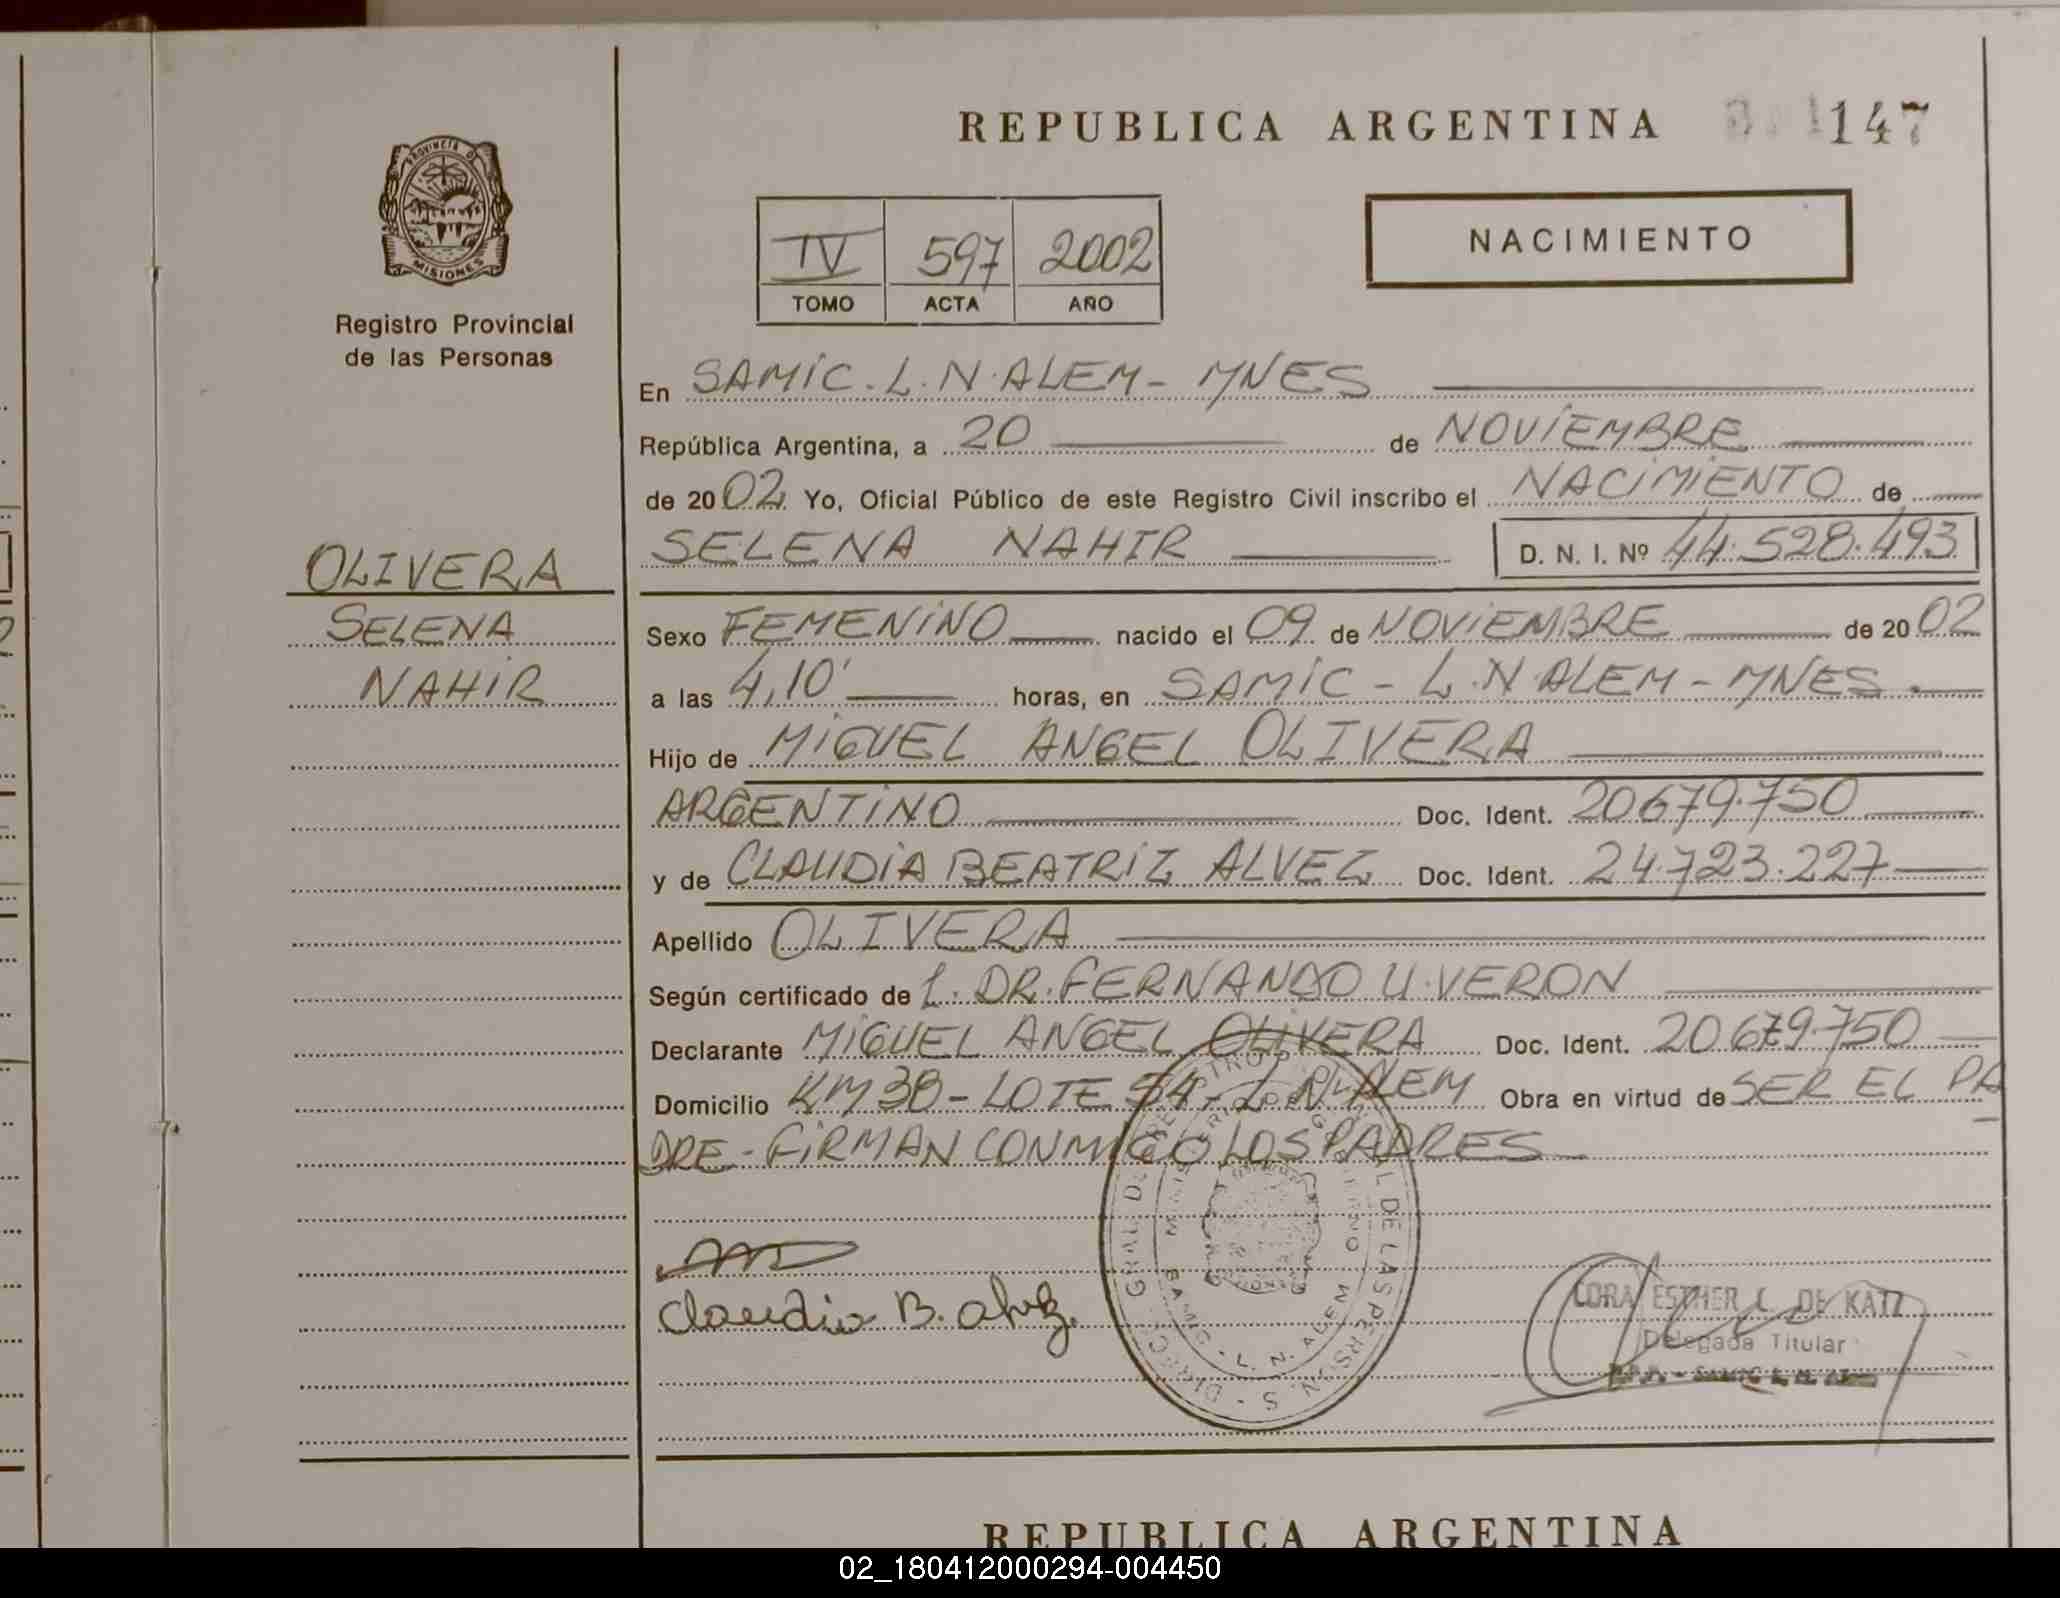 REPUBLICA ARGENTINA 147
PROVINCIA DE
MISIONES
Registro Provincial
de las Personas
IV 597 2002
TOMO ACTA AÑO
NACIMIENTO
En SAMIC. L. N. ALEM - MNES
República Argentina, a 20 de NOVIEMBRE
de 2002 Yo, Oficial Público de este Registro Civil inscribo el NACIMIENTO de
SELENA NAHIR D. N. I. Nº 44.528.493
OLIVERA
SELENA
NAHIR
Sexo FEMENINO nacido el 09 de NOVIEMBRE de 2002
a las 4,10' horas, en SAMIC - L. N. ALEM - MNES.
Hijo de MIGUEL ANGEL OLIVERA
ARGENTINO Doc. Ident. 20679.750
y de CLAUDIA BEATRIZ ALVEZ Doc. Ident. 24.723.227
Apellido OLIVERA
Según certificado de DR. FERNANDO U. VERON
Declarante MIGUEL ANGEL OLIVERA Doc. Ident. 20679.750
Domicilio KM 38 - LOTE 54 - L. N. ALEM Obra en virtud de SER EL PA
DRE - FIRMAN CONMIGO LOS PADRES
Claudia B. Alvez.
CORA ESTHER C. DE KATZ
Delegada Titular
SAMIC - L. N. ALEM
REPUBLICA ARGENTINA
02_180412000294-004450